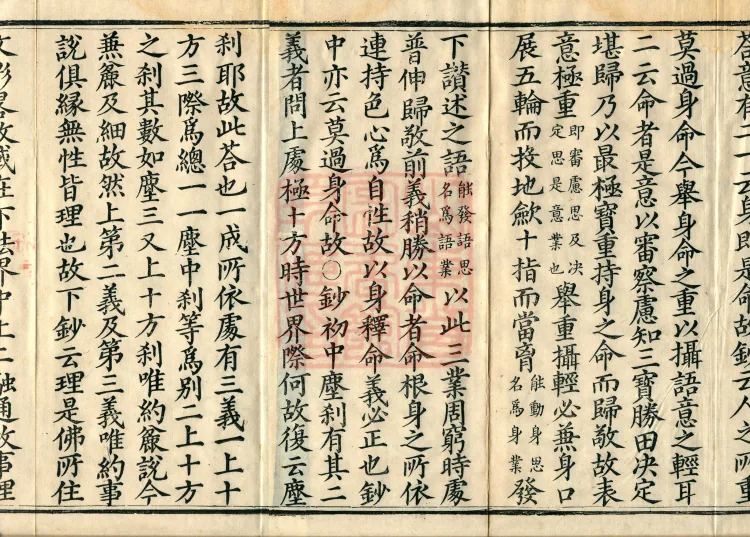 答意有二一云身即是命故鈔云人之所重
莫過身命今舉身命之重以攝語意之輕耳
二云命者是意以審察慮知三寶勝田决定
堪歸乃以最極寶重持身之命而歸敬故表
意極重即審慮思及决定思是意業也舉重攝輕必無身口
展五輪而投地歛十指而當胷能動身思名爲身業發
下讚述之語能發語思名爲語業以此三業周窮時處
普伸歸敬前義稍勝以命者命根身之所依
連持色心爲自性故以身釋命義必正也鈔
中亦云莫過身命故○鈔初中塵刹有其二
義者問上處極十方時世界際何故復云塵
刹耶故此荅也一成所依處有三義一上十
方三際爲總一一塵中刹等爲別二上十方
之刹其數如塵三又上十方刹唯約麁說今
無麁及細故然上第二義及第三義唯約事
說俱緣無性皆理也故下鈔云理是佛所住
下世界中上二融通故事理